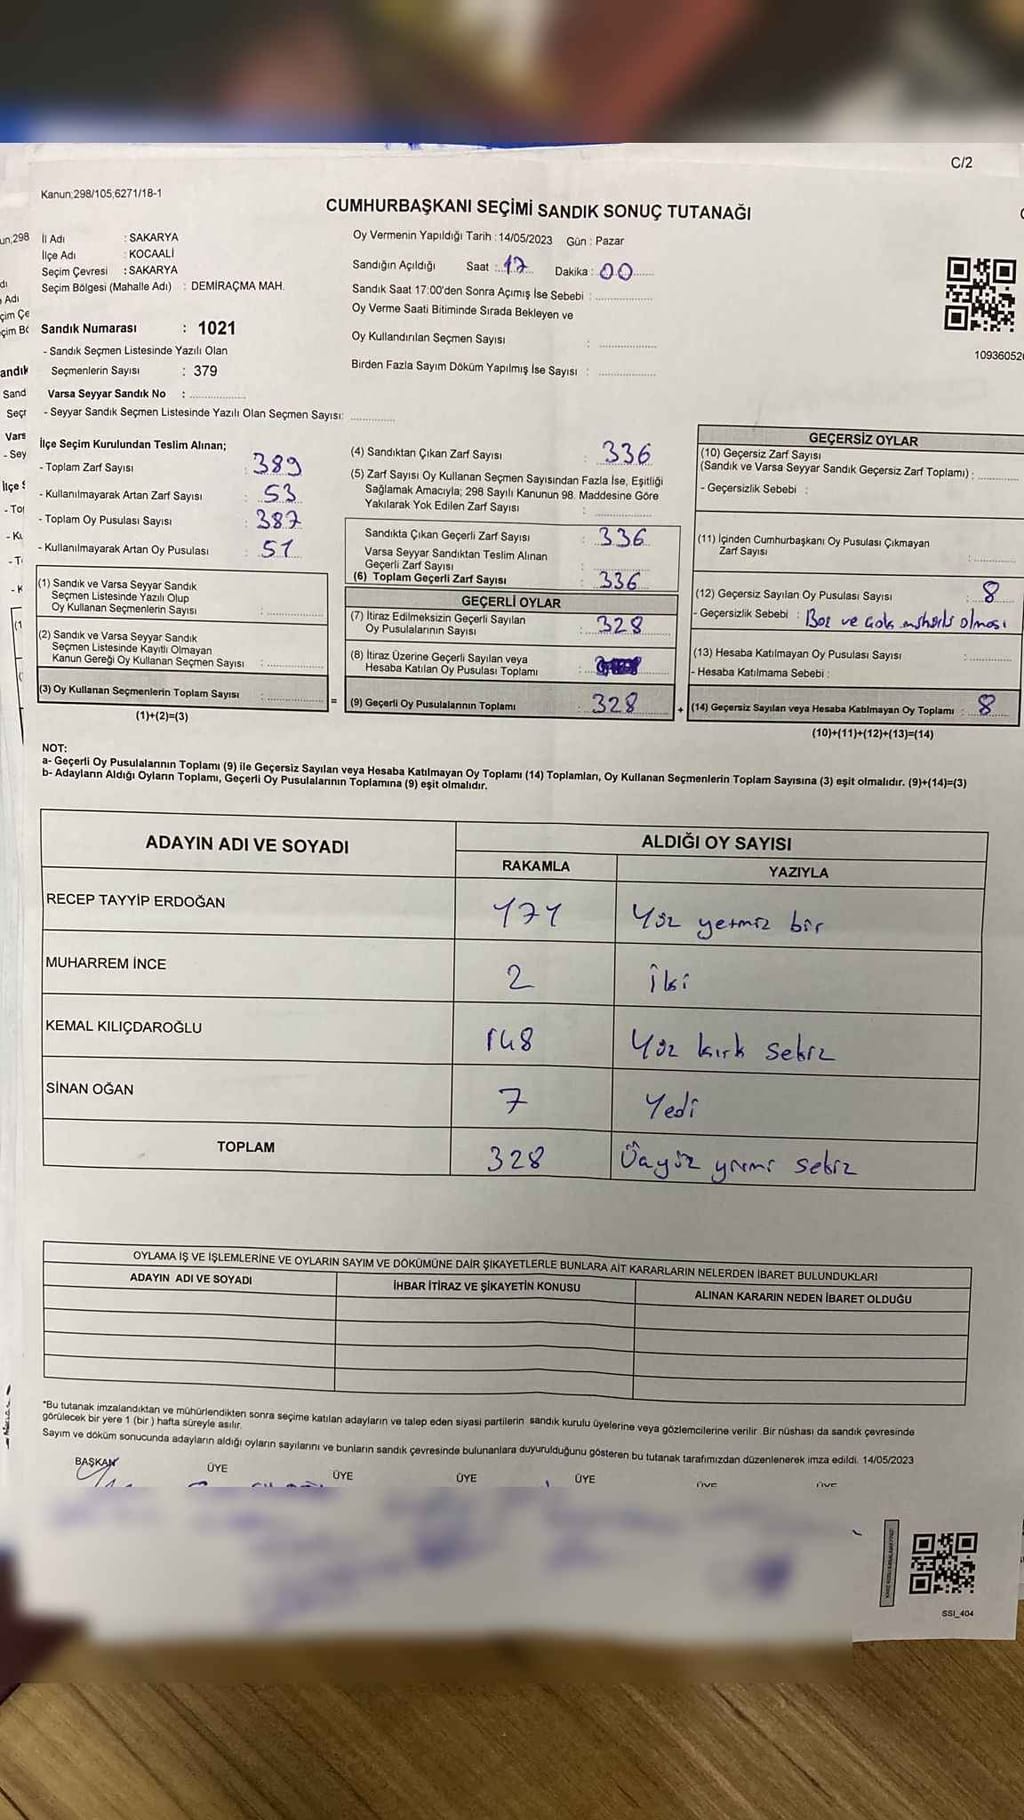 C/2
Kanun;298/105;6271/18-1
CUMHURBAŞKANI SEÇİMİ SANDIK SONUÇ TUTANAĞI
İl Adı : SAKARYA
İlçe Adı : KOCAALİ
Seçim Çevresi : SAKARYA
Seçim Bölgesi (Mahalle Adı) : DEMİRAÇMA MAH.
Sandık Numarası : 1021
- Sandık Seçmen Listesinde Yazılı Olan
Seçmenlerin Sayısı : 379
Varsa Seyyar Sandık No :
- Seyyar Sandık Seçmen Listesinde Yazılı Olan Seçmen Sayısı:
Oy Vermenin Yapıldığı Tarih : 14/05/2023 Gün : Pazar
Sandığın Açıldığı Saat : 17 Dakika : 00
Sandık Saat 17:00'den Sonra Açımış İse Sebebi :
Oy Verme Saati Bitiminde Sırada Bekleyen ve
Oy Kullandırılan Seçmen Sayısı :
Birden Fazla Sayım Döküm Yapılmış İse Sayısı :
10936052
İlçe Seçim Kurulundan Teslim Alınan;
- Toplam Zarf Sayısı : 389
- Kullanılmayarak Artan Zarf Sayısı : 53
- Toplam Oy Pusulası Sayısı : 387
- Kullanılmayarak Artan Oy Pusulası : 51
(1) Sandık ve Varsa Seyyar Sandık
Seçmen Listesinde Yazılı Olup
Oy Kullanan Seçmenlerin Sayısı :
(2) Sandık ve Varsa Seyyar Sandık
Seçmen Listesinde Kayıtlı Olmayan
Kanun Gereği Oy Kullanan Seçmen Sayısı :
(3) Oy Kullanan Seçmenlerin Toplam Sayısı :
(1)+(2)=(3)
(4) Sandıktan Çıkan Zarf Sayısı : 336
(5) Zarf Sayısı Oy Kullanan Seçmen Sayısından Fazla İse, Eşitliği
Sağlamak Amacıyla; 298 Sayılı Kanunun 98. Maddesine Göre
Yakılarak Yok Edilen Zarf Sayısı :
Sandıkta Çıkan Geçerli Zarf Sayısı : 336
Varsa Seyyar Sandıktan Teslim Alınan
Geçerli Zarf Sayısı :
(6) Toplam Geçerli Zarf Sayısı : 336
GEÇERLİ OYLAR
(7) İtiraz Edilmeksizin Geçerli Sayılan
Oy Pusulalarının Sayısı : 328
(8) İtiraz Üzerine Geçerli Sayılan veya
Hesaba Katılan Oy Pusulası Toplamı :
= (9) Geçerli Oy Pusulalarının Toplamı : 328
GEÇERSİZ OYLAR
(10) Geçersiz Zarf Sayısı
(Sandık ve Varsa Seyyar Sandık Geçersiz Zarf Toplamı) :
- Geçersizlik Sebebi :
(11) İçinden Cumhurbaşkanı Oy Pusulası Çıkmayan
Zarf Sayısı :
(12) Geçersiz Sayılan Oy Pusulası Sayısı : 8
- Geçersizlik Sebebi : Boz ve çok mühürlü olması
(13) Hesaba Katılmayan Oy Pusulası Sayısı :
- Hesaba Katılmama Sebebi :
+ (14) Geçersiz Sayılan veya Hesaba Katılmayan Oy Toplamı : 8
(10)+(11)+(12)+(13)=(14)
NOT:
a- Geçerli Oy Pusulalarının Toplamı (9) ile Geçersiz Sayılan veya Hesaba Katılmayan Oy Toplamı (14) Toplamları, Oy Kullanan Seçmenlerin Toplam Sayısına (3) eşit olmalıdır. (9)+(14)=(3)
b- Adayların Aldığı Oyların Toplamı, Geçerli Oy Pusulalarının Toplamına (9) eşit olmalıdır.
ADAYIN ADI VE SOYADI ALDIĞI OY SAYISI
RAKAMLA YAZIYLA
RECEP TAYYİP ERDOĞAN 171 Yüz yetmiz bir
MUHARREM İNCE 2 İki
KEMAL KILIÇDAROĞLU 148 Yüz kırk sekiz
SİNAN OĞAN 7 Yedi
TOPLAM 328 Üçyüz yirmi sekiz
OYLAMA İŞ VE İŞLEMLERİNE VE OYLARIN SAYIM VE DÖKÜMÜNE DAİR ŞİKAYETLERLE BUNLARA AİT KARARLARIN NELERDEN İBARET BULUNDUKLARI
ADAYIN ADI VE SOYADI İHBAR İTİRAZ VE ŞİKAYETİN KONUSU ALINAN KARARIN NEDEN İBARET OLDUĞU
*Bu tutanak imzalandıktan ve mühürlendikten sonra seçime katılan adayların ve talep eden siyasi partilerin sandık kurulu üyelerine veya gözlemcilerine verilir. Bir nüshası da sandık çevresinde
görülecek bir yere 1 (bir ) hafta süreyle asılır.
Sayım ve döküm sonucunda adayların aldığı oyların sayılarını ve bunların sandık çevresinde bulunanlara duyurulduğunu gösteren bu tutanak tarafımızdan düzenlenerek imza edildi. 14/05/2023
BAŞKAN ÜYE ÜYE ÜYE ÜYE ÜYE ÜYE
SSI_404